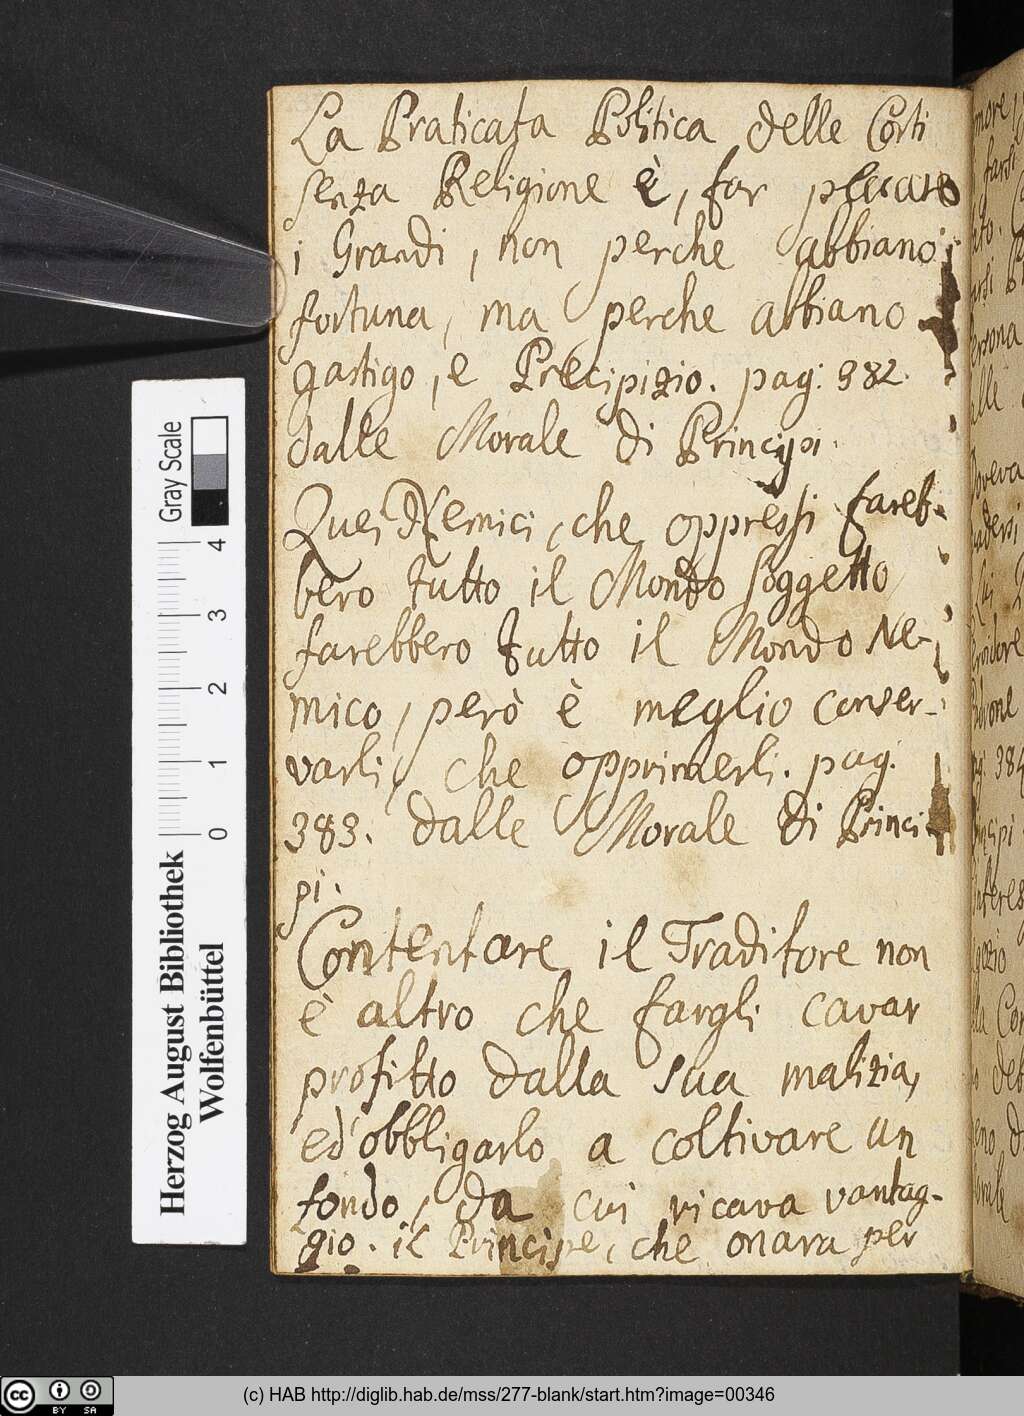 La Praticata Politica delle Corti
senza Religione è, far peccare
i Grandi, non perche abbiano
fortuna, ma perche abbiano
gastigo, e Precipizio. pag: 382.
dalle Morale di Principi.
Quei Nemici, che oppressi fareb-
bero tutto il Mondo soggetto
farebbero tutto il Mondo Ne-
mico, però è meglio conser-
varli, che opprimerli. pag.
383. dalle Morale di Princi-
pi.
Contentare il Traditore non
è altro che fargli cavar
profitto dalla sua malizia,
ed'obbligarlo a coltivare un
fondo, da cui ricava vantag-
gio. il Principe, che onara per
Herzog August Bibliothek
Wolfenbüttel
0 1 2 3 4
Gray Scale
(c) HAB http://diglib.hab.de/mss/277-blank/start.htm?image=00346
cc BY SA